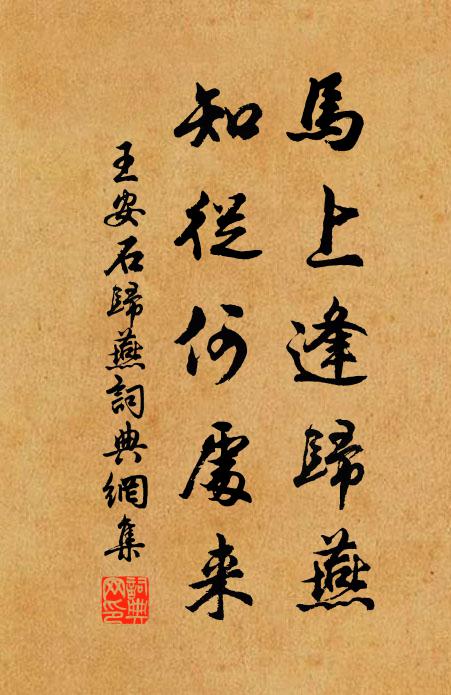 馬上逢歸燕
知從何處来
王安石歸燕詞典網集
詞典網印